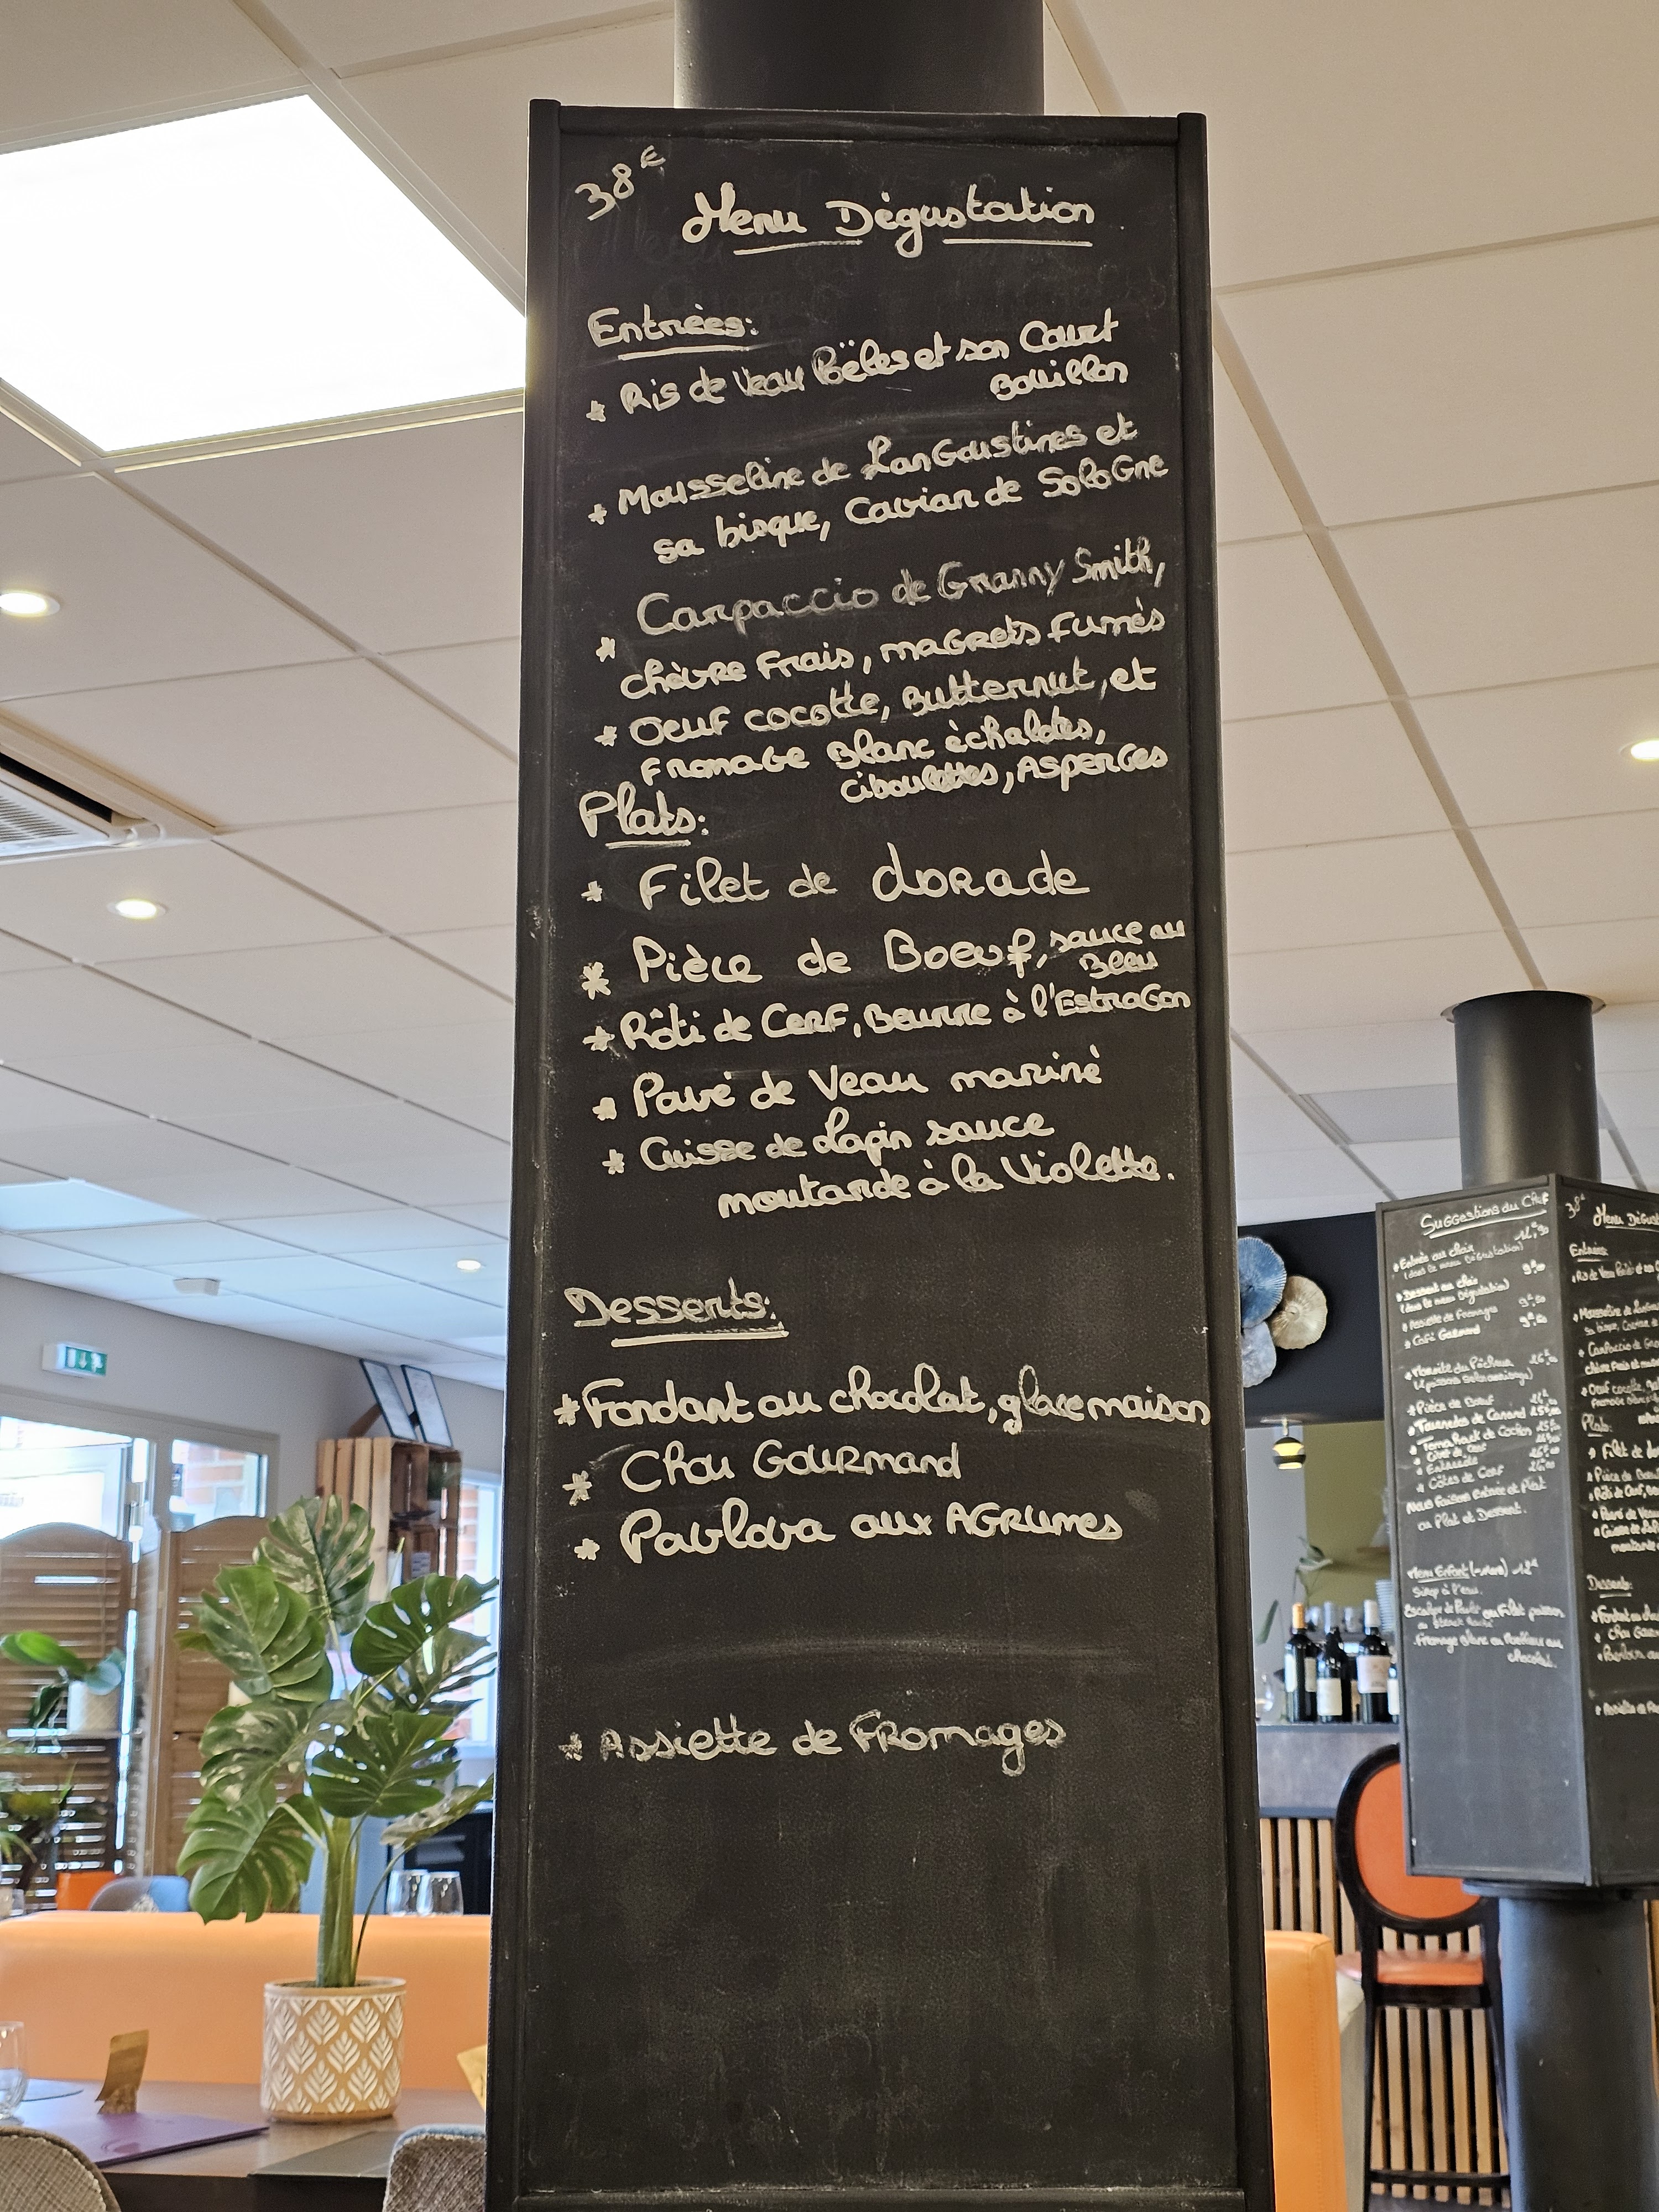 38€
Menu Dégustation
Entrées:
* Ris de Veau Poëles et son Court
Bouillon
* Mousseline de LanGoustines et
sa bisque, Caviar de SoloGne
Carpaccio de Granny Smith,
* chèvre Frais, maGrets Fumés
* Oeuf cocotte, Butternut, et
FromaGe Blanc échalotes,
ciboulettes, AsperGes
Plats:
* Filet de dorade
* Pièce de Boeuf, sauce au
Bleu
* Rôti de Cerf, Beurre à l'EstraGon
* Pavé de Veau mariné
* Cuisse de Lapin sauce
moutarde à la Violette.
Desserts:
* Fondant au chocolat, glace maison
* Chou Gourmand
* Pavlova aux AGrumes
* Assiette de Fromages
SuGGestions du Chef
* Entrée au choix
(dans le menu Dégustation)
* Dessert au choix
(dans le menu Dégustation)
* Assiette de Fromages
* Café Gourmand
* Marmite du Pêcheur
* Pièce de Boeuf
* Tournedos de Canard
* Tomahawk de Cochon
* Entrecôte
* Côtes de Cerf
Nous Faisons Entrée et Plat
ou Plat et Dessert.
Menu Enfant 12€
Sirop à l'eau.
ou Filet poisson
chocolat.
38€
Menu Dégust
Entrées:
* Ris de Veau
* Mousseline de
sa bisque,
* Carpaccio de
* Oeuf cocotte,
Plats:
* Filet de
* Pièce de
* Rôti de Cerf,
* Pavé de
* Cuisse de
Desserts:
* Fondant au
* Chou
* Assiette de